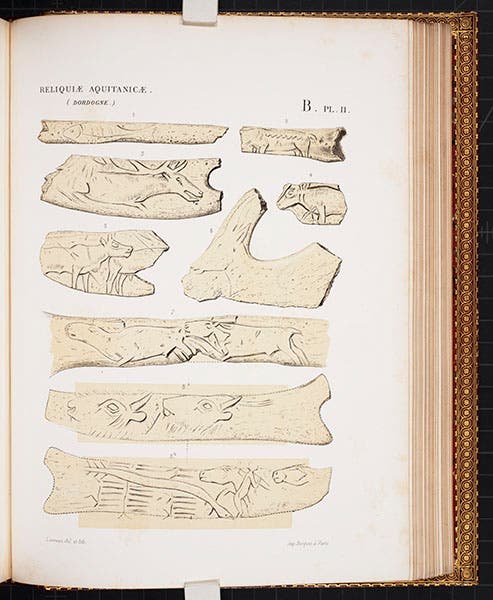 RELIQUIÆ AQUITANICÆ.
(DORDOGNE.)
B. PL. II.
1
2
3
4
5
6
7
8ª
8ᵇ
del. et lith.
Imp. Becquet à Paris